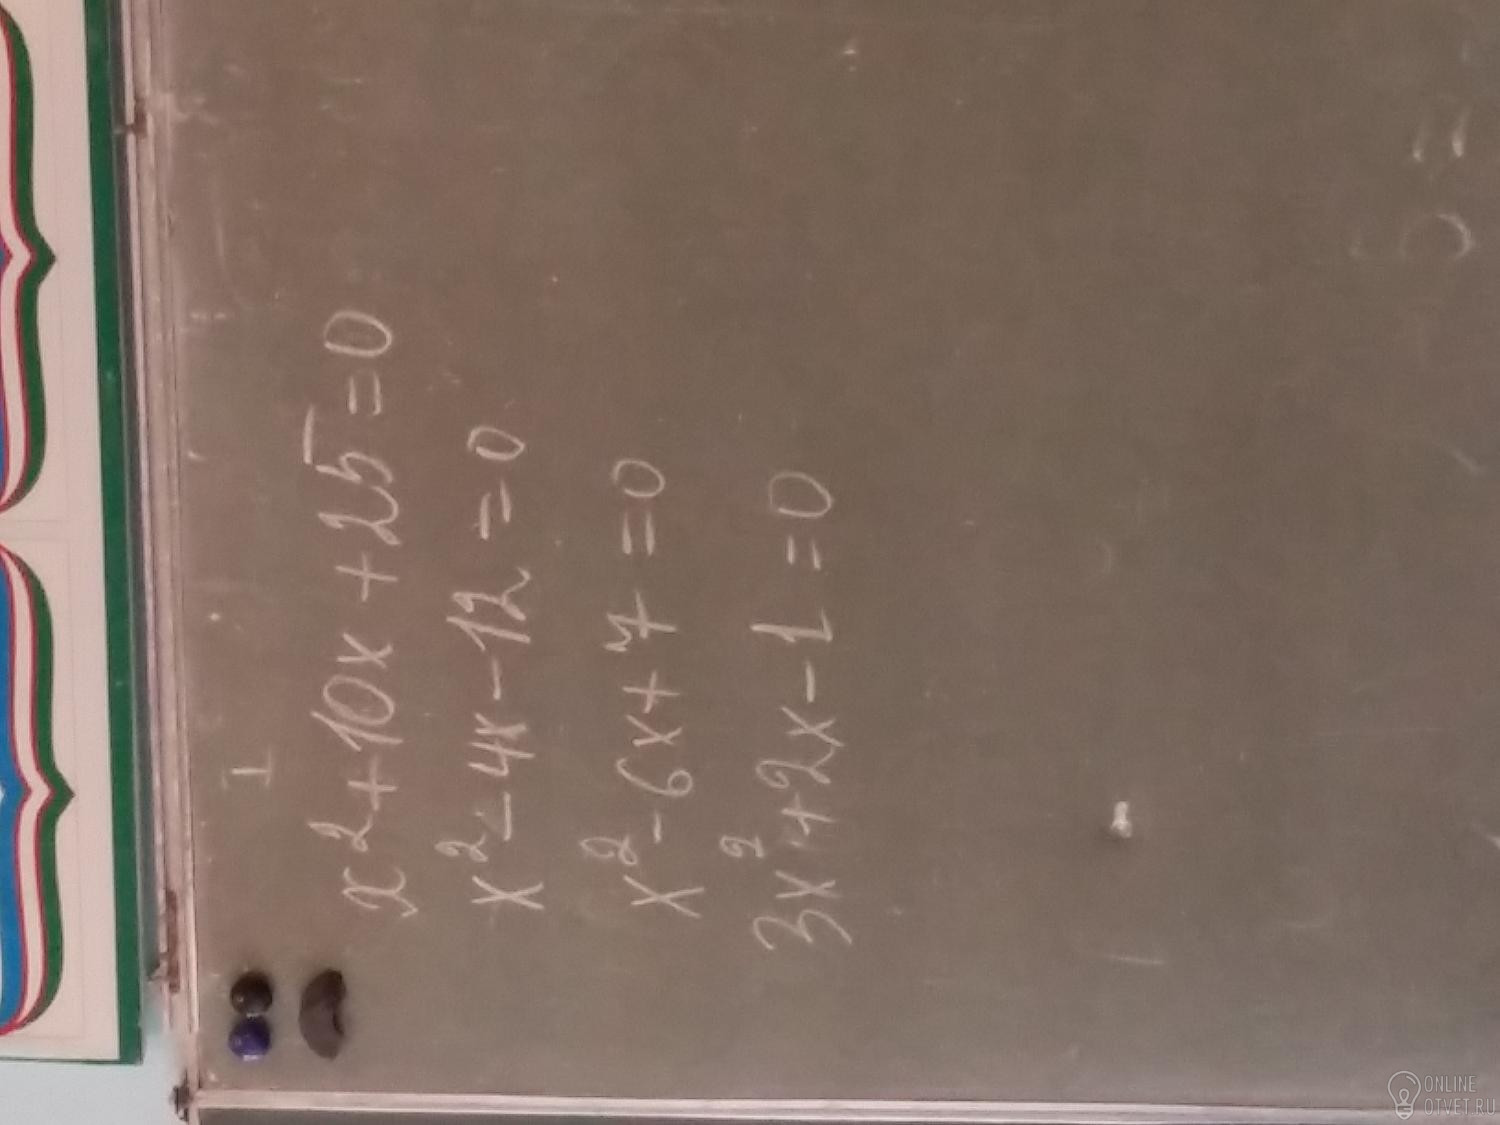 I
x²+10x+25=0
x²-4x-12=0
x²-6x+7=0
3x²+2x-1=0
ONLINE
OTVET.RU